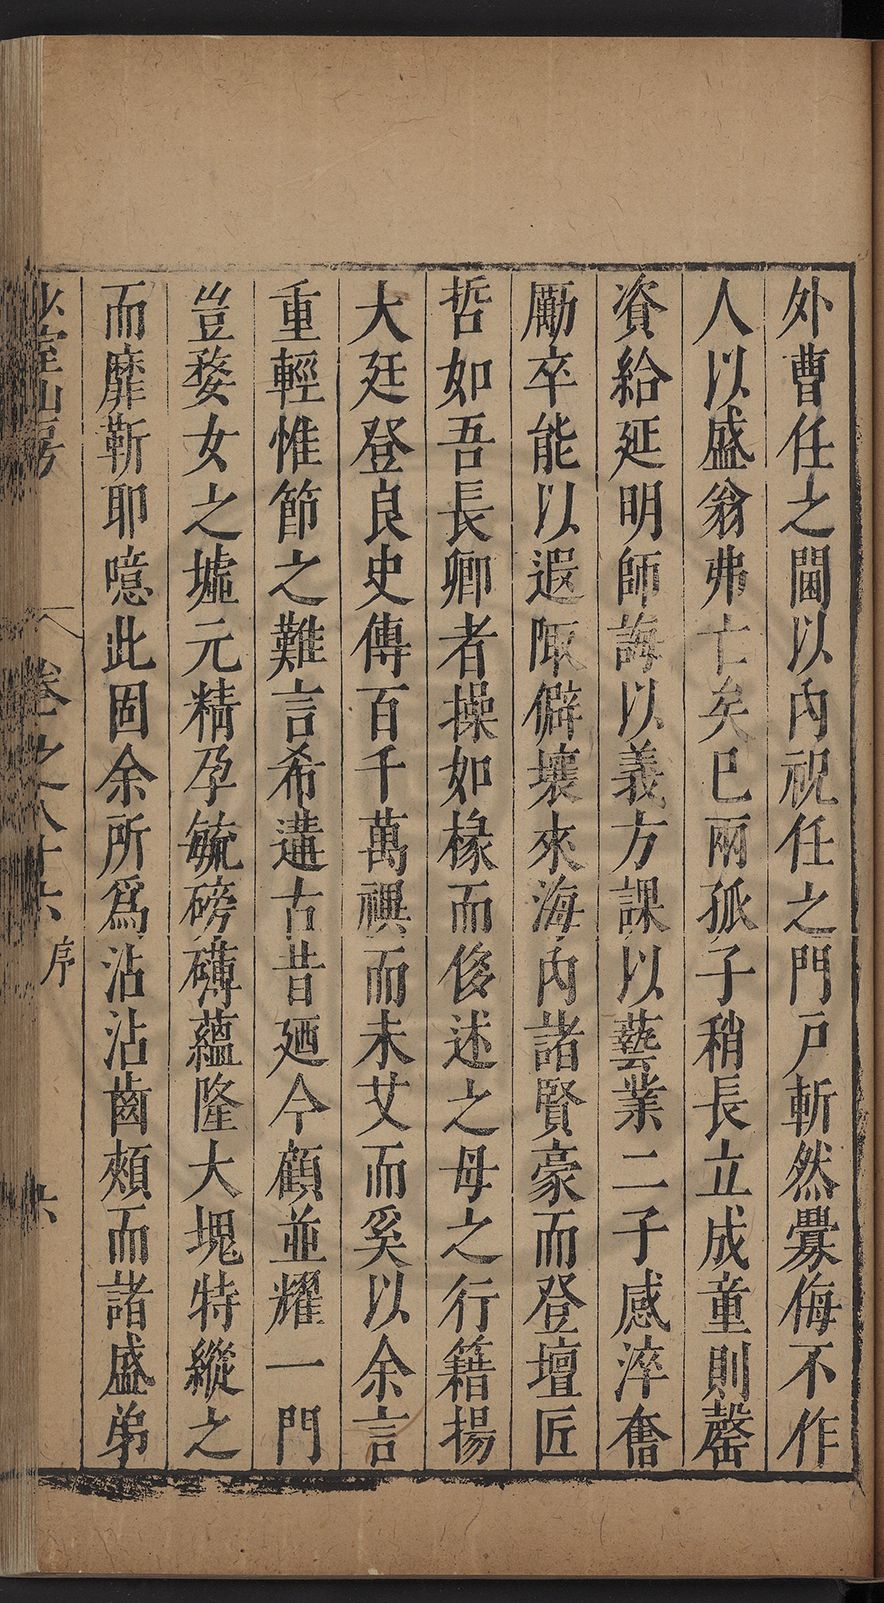 外曹任之閫以內祝任之門戸斬然釁侮不作
人以盛翁弗亡矣巳兩孤子稍長立成童則罄
資給延明師誨以義方課以藝業二子感淬奮
勵卒能以遐陬僻壤來海內諸賢豪而登壇匠
哲如吾長卿者操如椽而俊述之母之行籍揚
大廷登良史傳百千萬禩而未艾而奚以余言
重輕惟節之難言希遘古昔廼今顧並耀一門
豈婺女之墟元精孕毓磅礴蘊隆大塊特縱之
而靡靳耶噫此固余所爲沾沾齒頰而諸盛弟
室山房 卷之八十六 序 六